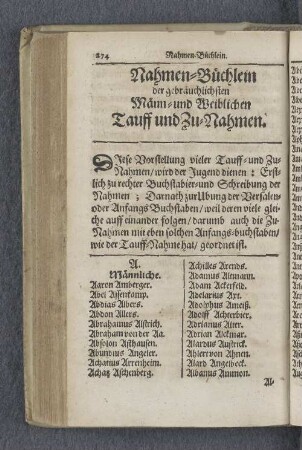 274 Nahmen-Büchlein.
Nahmen-Büchlein
der gebräuchlichsten
Männ- und Weiblichen
Tauff und Zu-Nahmen.
Diese Vorstellung vieler Tauff- und Zu-
Nahmen / wird der Jugend dienen : Erst-
lich zu rechter Buchstabier- und Schreibung der
Nahmen ; Darnach zur Ubung der Versalen-
oder Anfangs Buchstaben / weil deren viele glei-
che auff einander folgen / darumb auch die Zu-
Nahmen mit eben solchen Anfangs-buchstaben /
wie der Tauff-Nahme hat / geordnet ist.
A.
Männliche.
Aaron Amberger.
Abel Assenkamp.
Abdias Albers.
Abdon Allers.
Abrahamus Alstrich.
Abraham von der Aa.
Absolon Asthausen.
Abundius Angeler.
Achatius Arrenheim.
Achatz Aschenberg.
Achilles Arends.
Adamus Altmann.
Adam Ackerfeld.
Adelarius Axt.
Adolphus Ameiß.
Adolff Achterbier.
Adrianus Alter.
Adrian Aickmar.
Alardus Austrick.
Ahlert von Ahnen.
Alard Angelbeck.
Albanus Ammon.
Al-